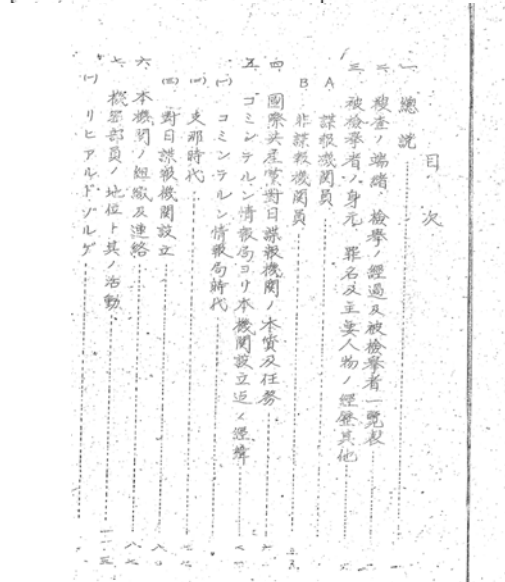 目次
一、總説
二、搜査ノ端緒、檢擧ノ經過及被檢擧者一覽表
三、被檢擧者ノ身元、罪名及主要人物ノ經歴其他
A 諜報機関員
B 非諜報機関員
四、國際共産黨對日諜報機関ノ本質及任務
五、コミンテルン情報局ヨリ本機関設立迄ノ經緯
(一) コミンテルン情報局時代
(二) 支那時代
(三) 對日諜報機関設立
六、本機関ノ組織及連絡
七、機関部員ノ地位ト其ノ活動
(一) リヒアルドゾルゲ